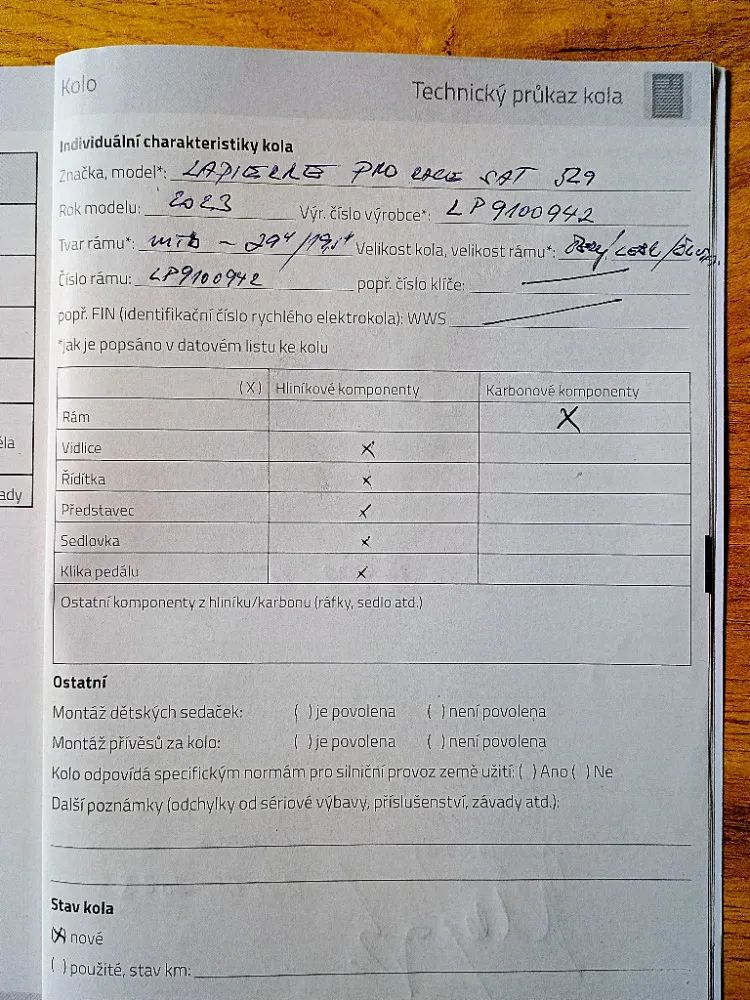 Kolo
Technický průkaz kola
Individuální charakteristiky kola
Značka, model*: LAPIERRE PRO RACE SAT 529
Rok modelu: 2023 Výr. číslo výrobce*: LP9100942
Tvar rámu*: MTB - 29"/19,5" Velikost kola, velikost rámu*:
Číslo rámu: LP9100942 popř. číslo klíče:
popř. FIN (identifikační číslo rychlého elektrokola): WWS
*jak je popsáno v datovém listu ke kolu
(X) Hliníkové komponenty Karbonové komponenty
Rám X
Vidlice X
Řídítka X
Představec X
Sedlovka X
Klika pedálu X
Ostatní komponenty z hliníku/karbonu (ráfky, sedlo atd.)
Ostatní
Montáž dětských sedaček: ( ) je povolena ( ) není povolena
Montáž přívěsů za kolo: ( ) je povolena ( ) není povolena
Kolo odpovídá specifickým normám pro silniční provoz země užití: ( ) Ano ( ) Ne
Další poznámky (odchylky od sériové výbavy, příslušenství, závady atd.):
Stav kola
(X) nové
( ) použité, stav km:
ěla
ady